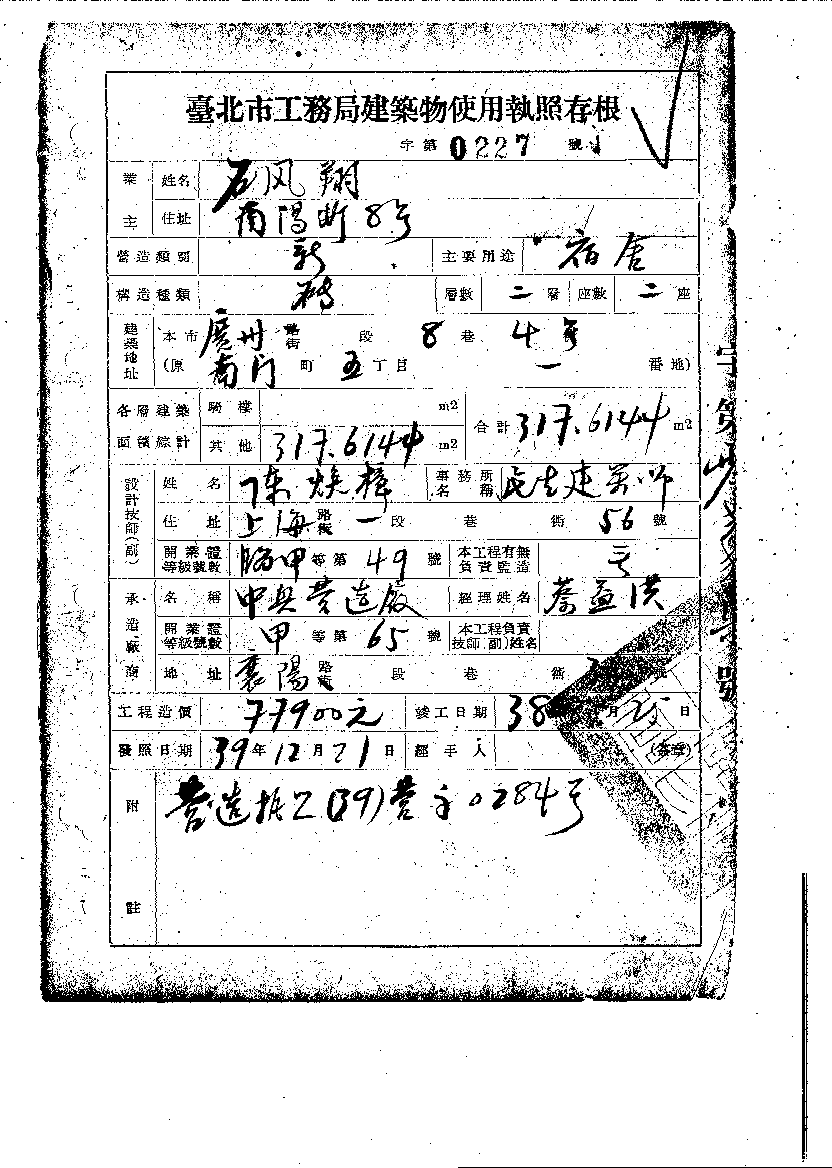 臺北市工務局建築物使用執照存根
字第0227號
業主 姓名 石凤翔
住址 南陽街8号
營造類別 新 主要用途 宿舍
構造種類 磚 層數 二層 座數 二座
建築地址 本市廣州路街 段8巷4号
(原南门町五丁目一番地)
各層建築面積綜計 騎樓 m2 合計317.6144m2
其他 317.6144m2
設計技師(副) 姓名 陳焕 事務所名稱 建築师
住址 上海路街一段 巷 衖56號
開業證等級號數 甲等第49號 本工程有無負責監造
承造廠商 名稱 中興营造廠 經理姓名 蔡益洪
開業證等級號數 甲等第65號 本工程負責技師(副)姓名
地址 襄陽路街 段 巷 衖 號
工程造價 77900元 竣工日期 38 月25日
發照日期 39年12月21日 經手人 (簽章)
附註 营造执乙(39)营字0284号
字第 號